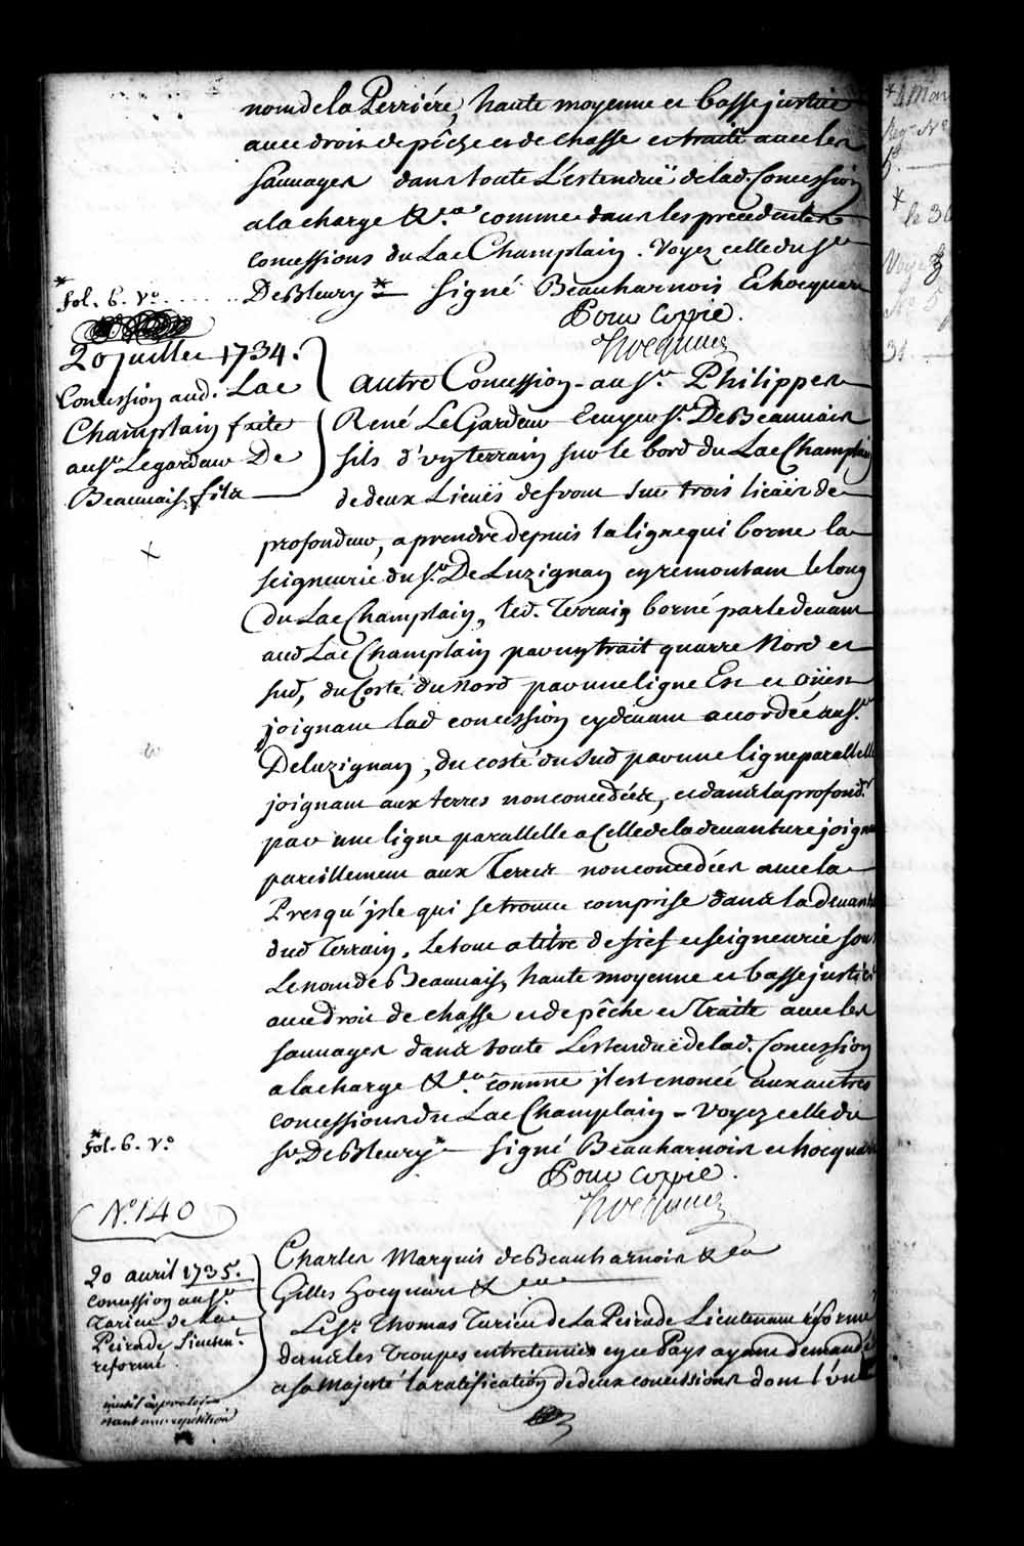 nom de la Perriére, haute moyenne et basse justice
avec droit de pêche et de chasse et traité avec les
Sauvages dans toute L'estenduë de lad. Concession
a la charge &.ca comme dans les precedentes
concessions du Lac Champlain. Voyez celle du Sr
* Fol. 6. Vo. ....... De Bleury * Signé Beauharnois & hocquart
Pour Coppie.
Hocquart
20 Juillet 1734.
Concession aud. Lac
Champlain faite
au Sr Legardeur De
Beauvais fils
Autre Concession au Sr. Philippes
René Le Gardeur Ecuyer Sr. De Beauvais
fils d'un terrain sur le bord du Lac Champlain
de deux Lieuës de front sur trois lieuës de
profondeur, a prendre depuis la ligne qui borne la
seigneurie du Sr. De Luzignan en remontant le long
du Lac Champlain, led. Terrain borné par le devant
aud Lac Champlain par un trait quarre Nord et
Sud, du Costé du Nord par une ligne Est et Oüest
joignant lad concession cy devant accordée au Sr.
De luzignan, du costé du Sud par une ligne parallelle
joignant aux terres non concedées, et dans la profondr.
par une ligne parallelle a Celle de la devanture joignant
pareillement aux Terres non concedées avec la
Presqu'isle qui se trouve comprise dans la devanture
dud Terrain. Le tout a titre de fief et seigneurie sous
Le nom de Beauvais, haute moyenne et basse justice
avec Droit de chasse et de pêche et Traitte avec les
sauvages dans toute L'estenduë de lad. Concession
a la charge &.ca comme il est enoncé aux autres
concessions du Lac Champlain - Voyez celle du
* Fol. 6. Vo.
Sr. De Bleury * Signé Beauharnois et hocquart
Pour Coppie.
Hocquart
No. 140
20 avril 1735.
Concession au Sr.
Tarieu de La
Peirade Lieutent.
reformé
Charles Marquis de Beauharnois &ca
Gilles Hocquart &ca
Le Sr. Thomas Tarieu de La Peirade Lieutenant réformé
dans les Troupes entretenües en ce Pays ayant demandé
a sa Majesté la ratification de deux concessions dont l'une